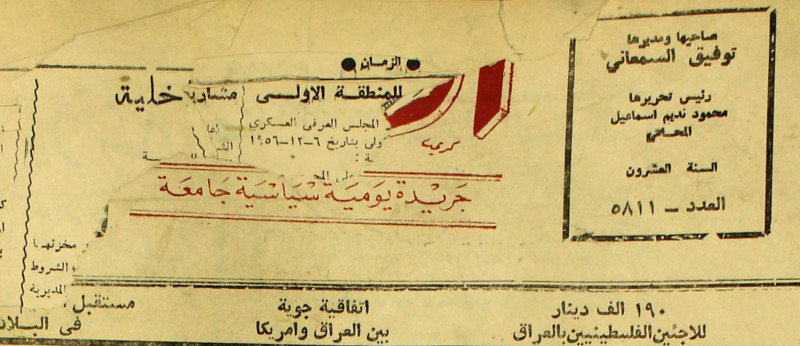 صاحبها ومديرها
توفيق السمعاني
رئيس تحريرها
محمود نديم اسماعيل
المحامي
السنة العشرون
العدد ـ ٥٨١١
الزمان
للمنطقة الاولى
المجلس العرفي العسكري
ولى بتاريخ ٦-١٢-١٩٥٦
خلية
جريدة يومية سياسية جامعة
مخزنها
الشروط
المديرية
١٩٠ الف دينار
للاجئين الفلسطينيين بالعراق
اتفاقية جوية
بين العراق وامريكا
مستقبل
في البلاد